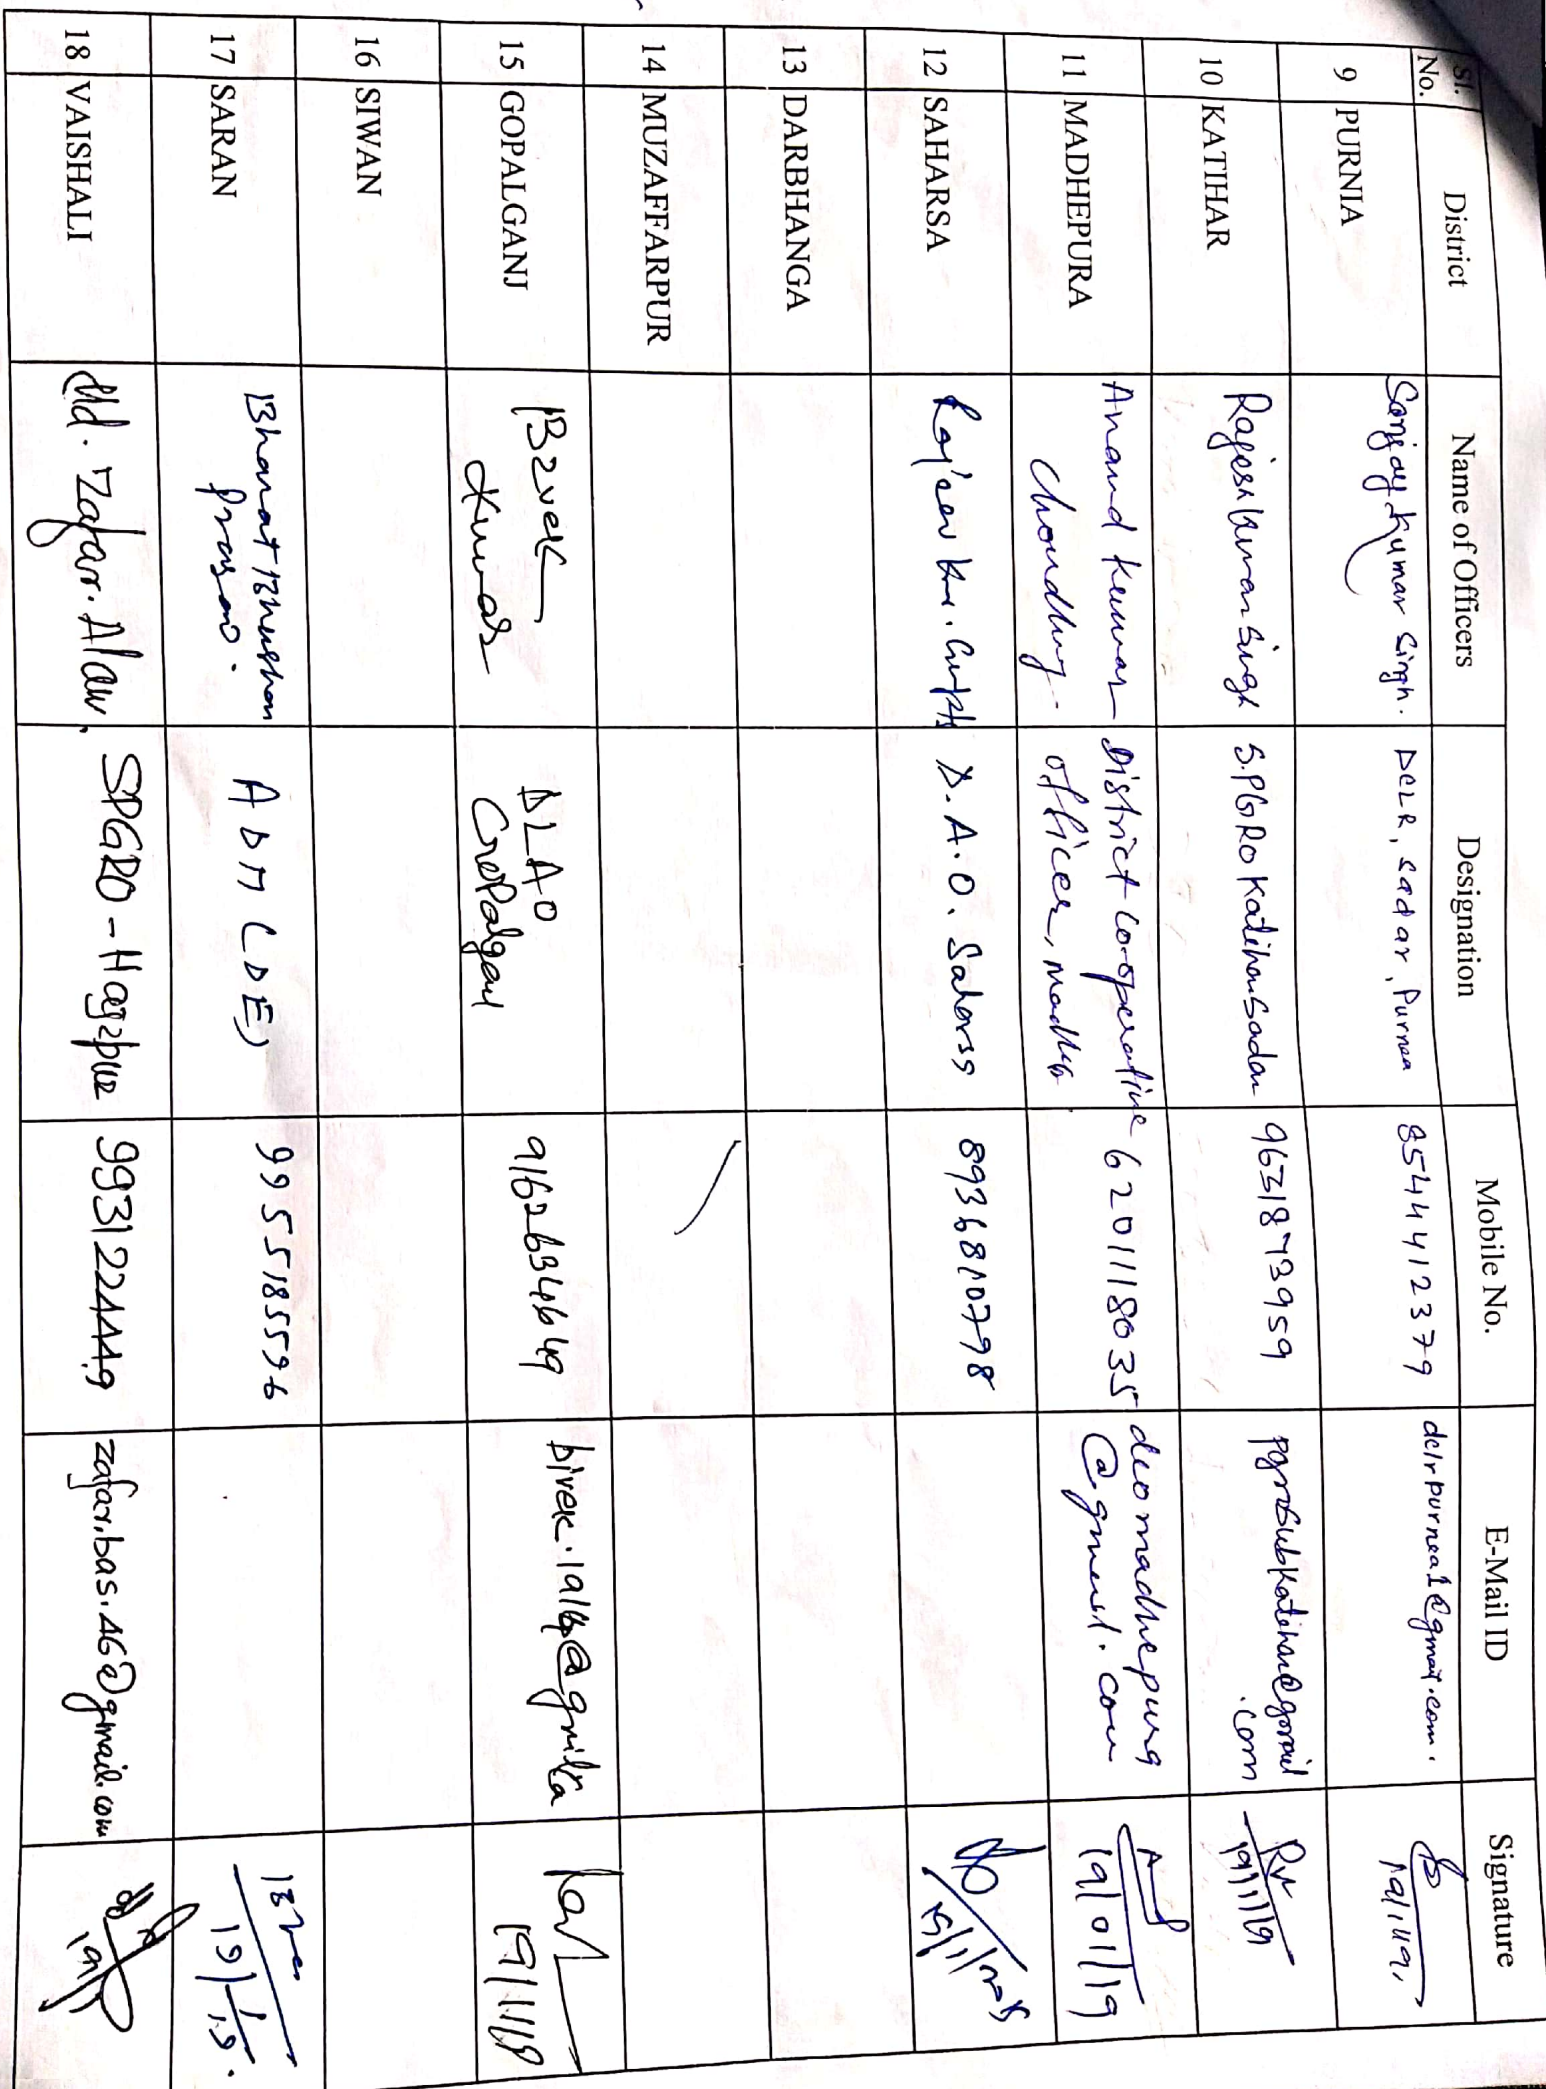 Sl. No. District Name of Officers Designation Mobile No. E-Mail ID Signature
9 PURNIA Sanjay Kumar Singh. DCLR, Sadar, Purnea 8544412379 dclrpurnea1@gmail.com. 19/1/19,
10 KATIHAR Rajesh Kumar Singh S.PGRO Katihar Sadar 9631873959 pgrosubkatihar@gmail
.com 19/1/19
11 MADHEPURA Anand Kumar District Co-operative 6201118035 dcomadhepura
Choudhury. officer, @gmail.com 19/01/19
12 SAHARSA Rajeev Kr. Gupta D.A.O. Saharsa 8936810798
13 DARBHANGA
14 MUZAFFARPUR
15 GOPALGANJ Bivek DLAO 9162634649
Kumar 19/1/19
16 SIWAN
17 SARAN Bharat Bhushan ADM (DE) 9955185596
Prasad. 19/1/19.
18 VAISHALI Md. Zafar. Alam, SPGRO - Hajipur 9931224449 zafar.bas.46@gmail.com